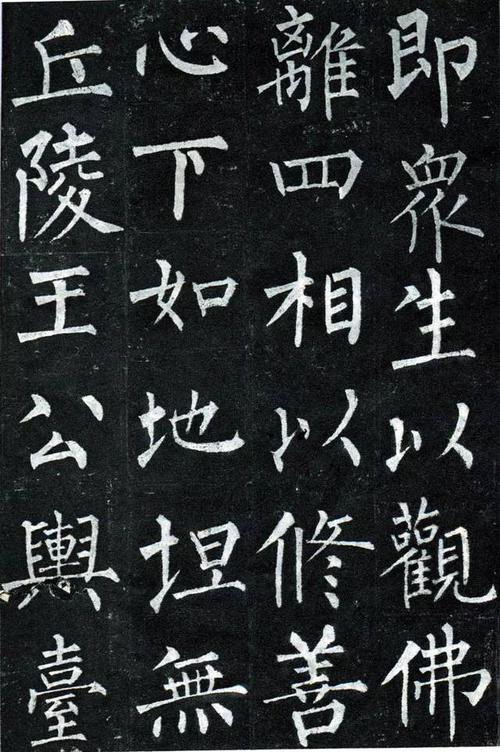 即衆生以觀佛
離四相以修善
心下如地坦無
丘陵王公輿臺